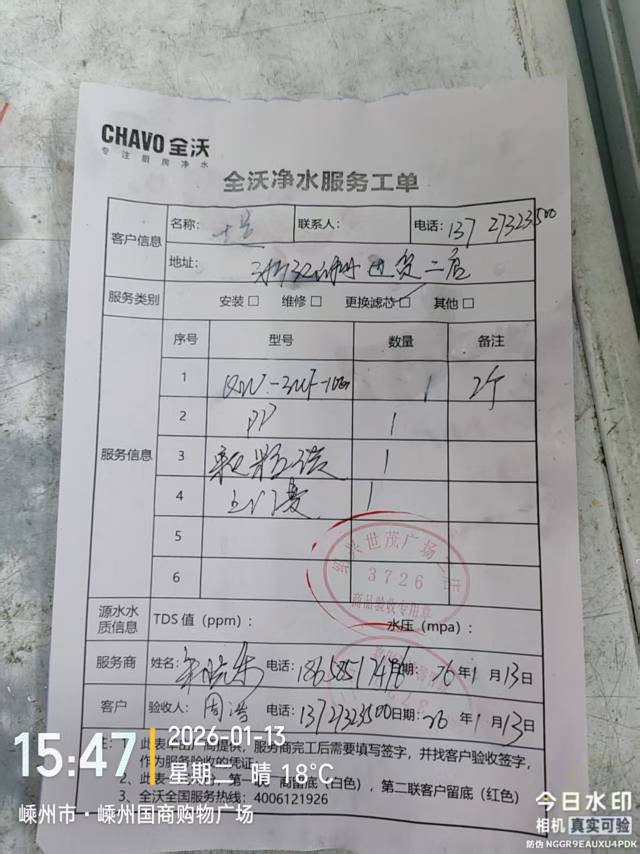 CHAVO 全沃
专注厨房净水
全沃净水服务工单
客户信息
名称:
联系人:
电话: 13727323500
地址: 二店
服务类别
安装□ 维修□ 更换滤芯□ 其他□
服务信息
序号 型号 数量 备注
1 1 2个
2 PP 1
3 1
4 上门费 1
5
6
世茂广场二店
3726
商品验收专用章
源水水质信息
TDS 值（ppm）: 水压（mpa）:
服务商 姓名: 电话: 日期: 26年1月13日
客户 验收人: 周 电话: 13727323500 日期: 26年1月13日
注: 1、此表单由厂商提供，服务商完工后需要填写签字，并找客户验收签字，
作为服务验收的凭证
2、此表一 第一联 商留底（白色），第二联客户留底（红色）
3、全沃全国服务热线: 4006121926
15:47
2026-01-13
星期二 晴 18℃
嵊州市·嵊州国商购物广场
今日水印
相机 真实可验
防伪 NGGR9EAUXU4PDK